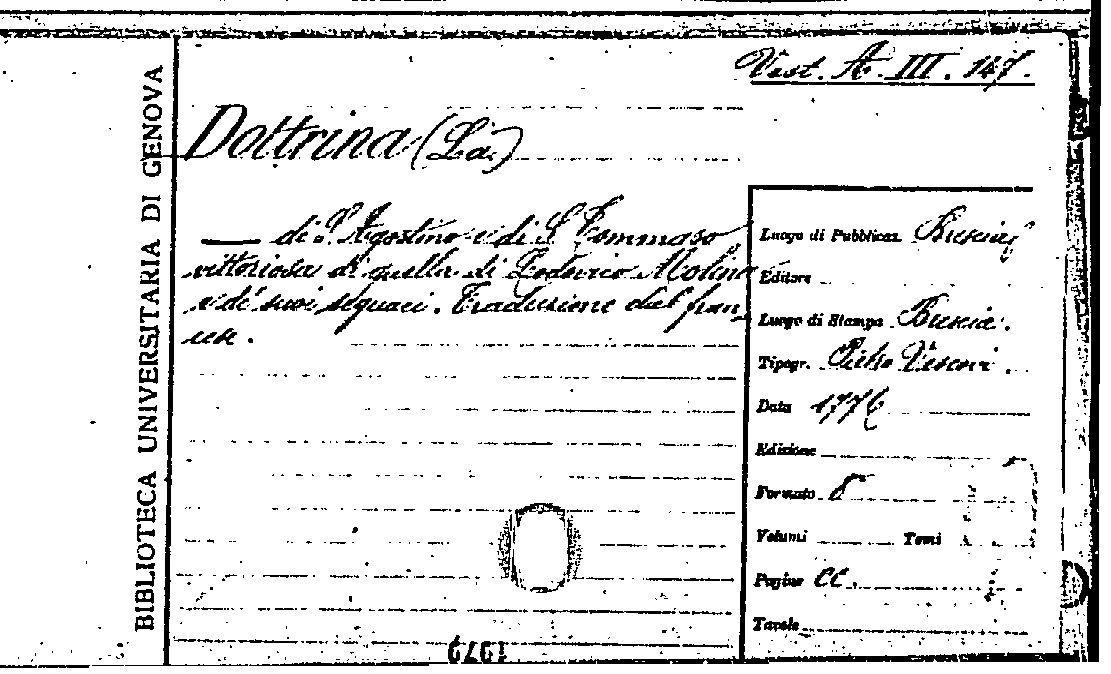 BIBLIOTECA UNIVERSITARIA DI GENOVA
Vest. A. III. 147.
Dottrina (La)
— di S. Agostino e di S. Tommaso
vittoriosa di quella di Lodovico Molina
e di suoi seguaci. Traduzione dal fran-
cese.
Luogo di Pubblicaz. Brescia
Editore
Luogo di Stampa Brescia.
Tipogr. Pietro Vescovi.
Data 1776
Edizione
Formato 8°
Volumi Tomi
Pagine CC.
Tavole
1979